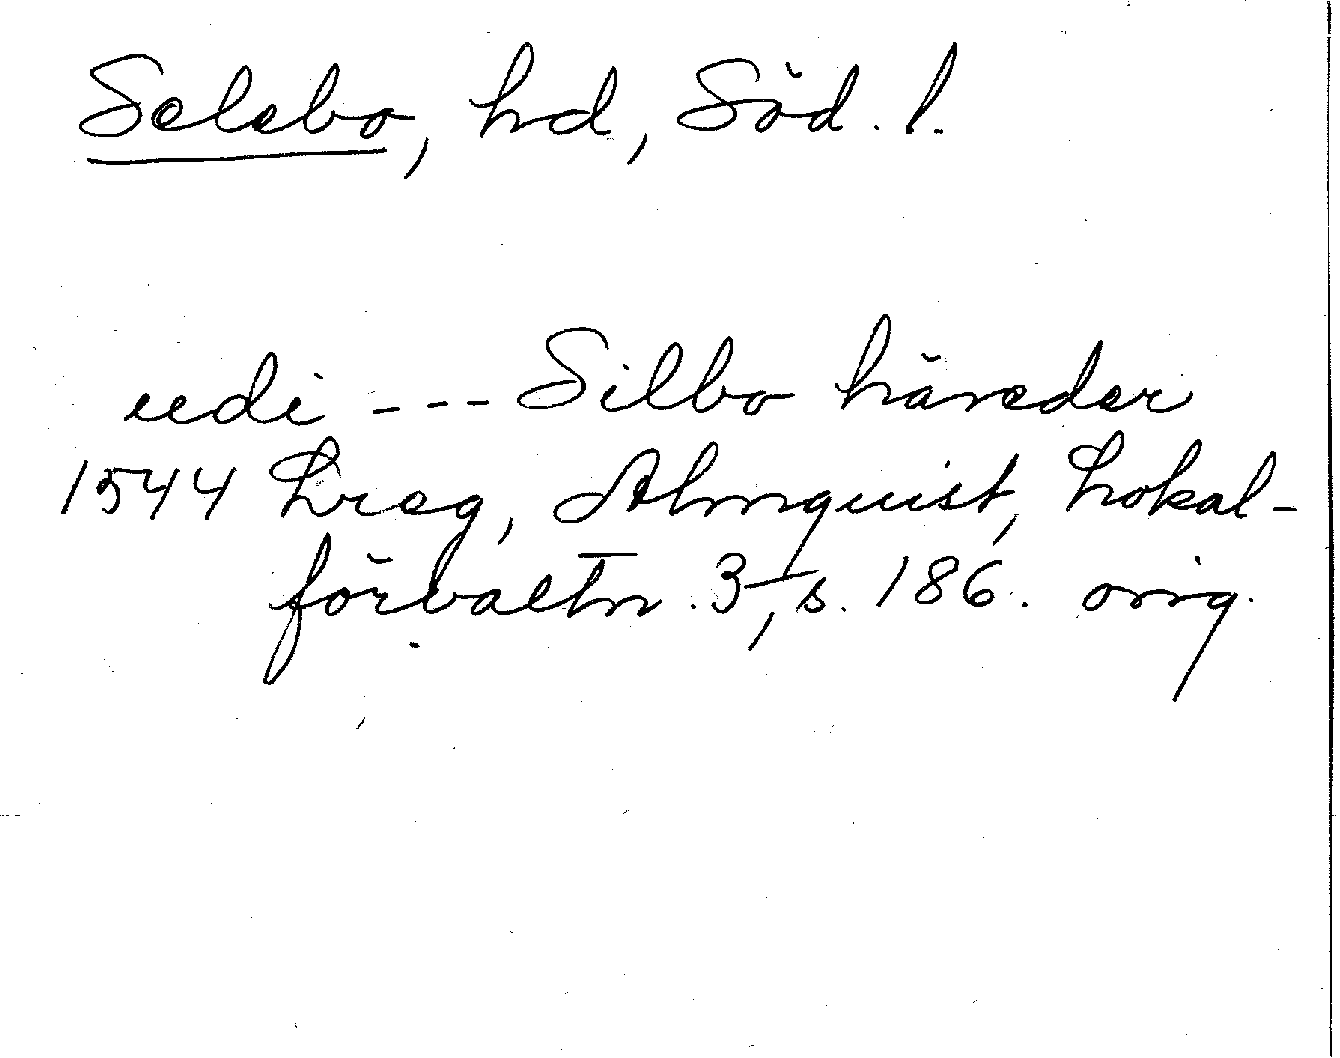 Selebo, hd, Söd. l.
udi --- Silbo häreder
1544 Lreg, Almquist, Lokal-
förvaltn. 3, s. 186. orig.